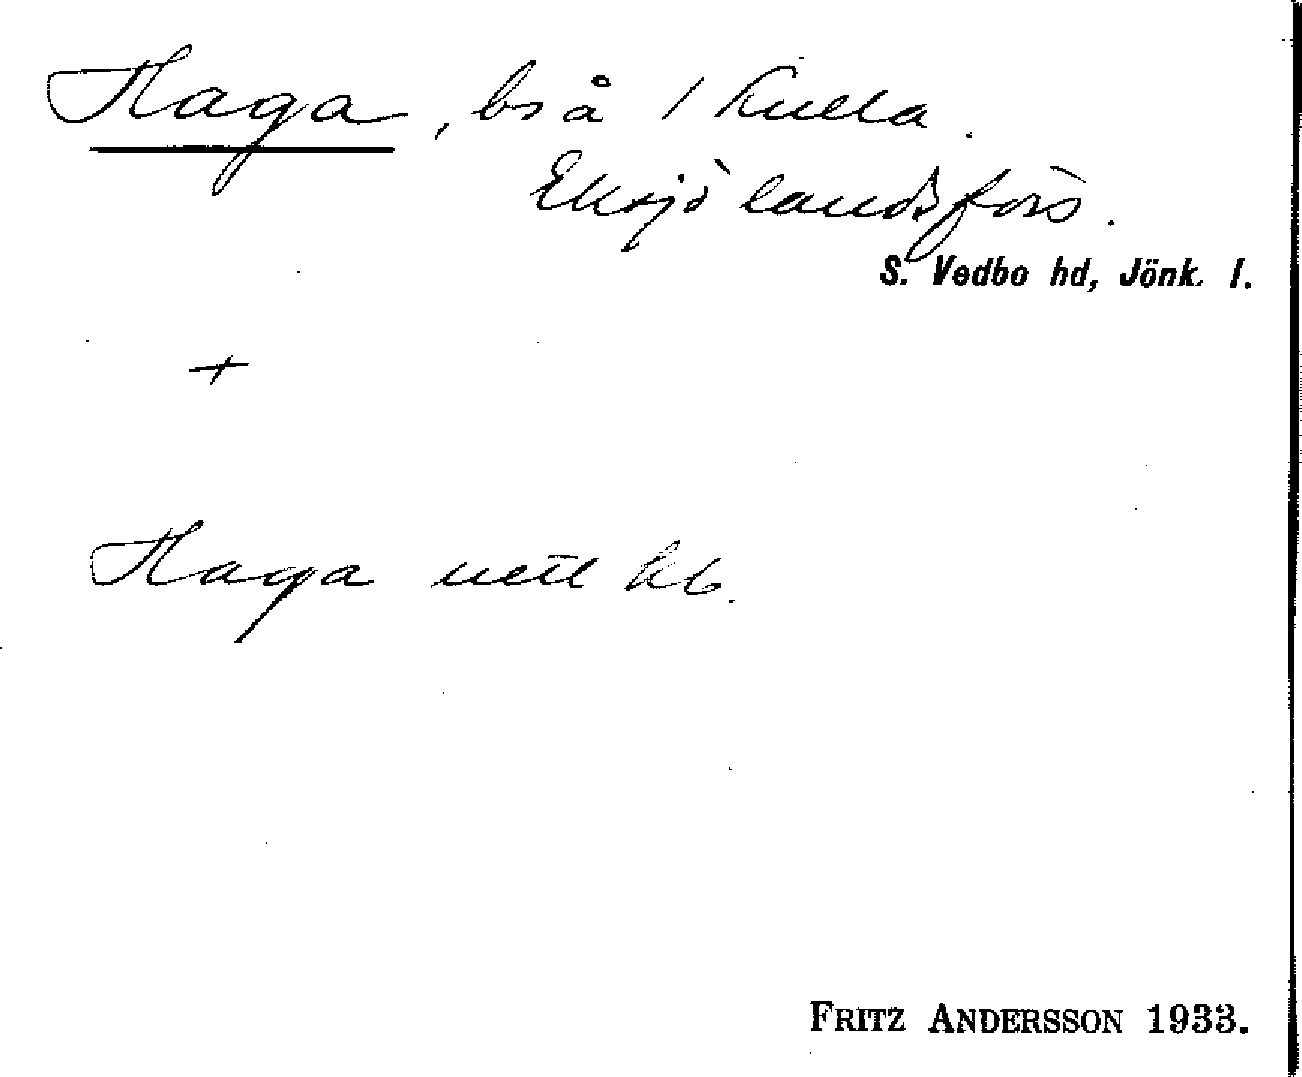 Haga, bs å 1 Kulla.
Eksjö landsförs.
S. Vedbo hd, Jönk. l.
+
Haga nell hb.
FRITZ ANDERSSON 1933.